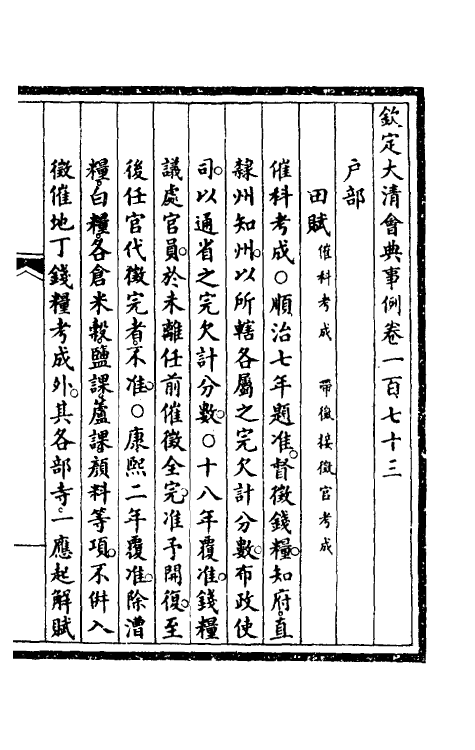 欽定大清會典事例卷一百七十三
戶部
田賦催科考成 帶徵接徵官考成
催科考成○順治七年題准。督徵錢糧。知府。直
隸州知州。以所轄各屬之完欠計分數。布政使
司。以通省之完欠計分數。○十八年覆准。錢糧
議處官員。於未離任前催徵全完。准予開復。至
後任官代徵完者不准。○康熙二年覆准。除漕
糧。白糧。各倉米穀鹽課。蘆課。顏料等項。不併入
徵催地丁錢糧考成外。其各部寺。一應起解賦